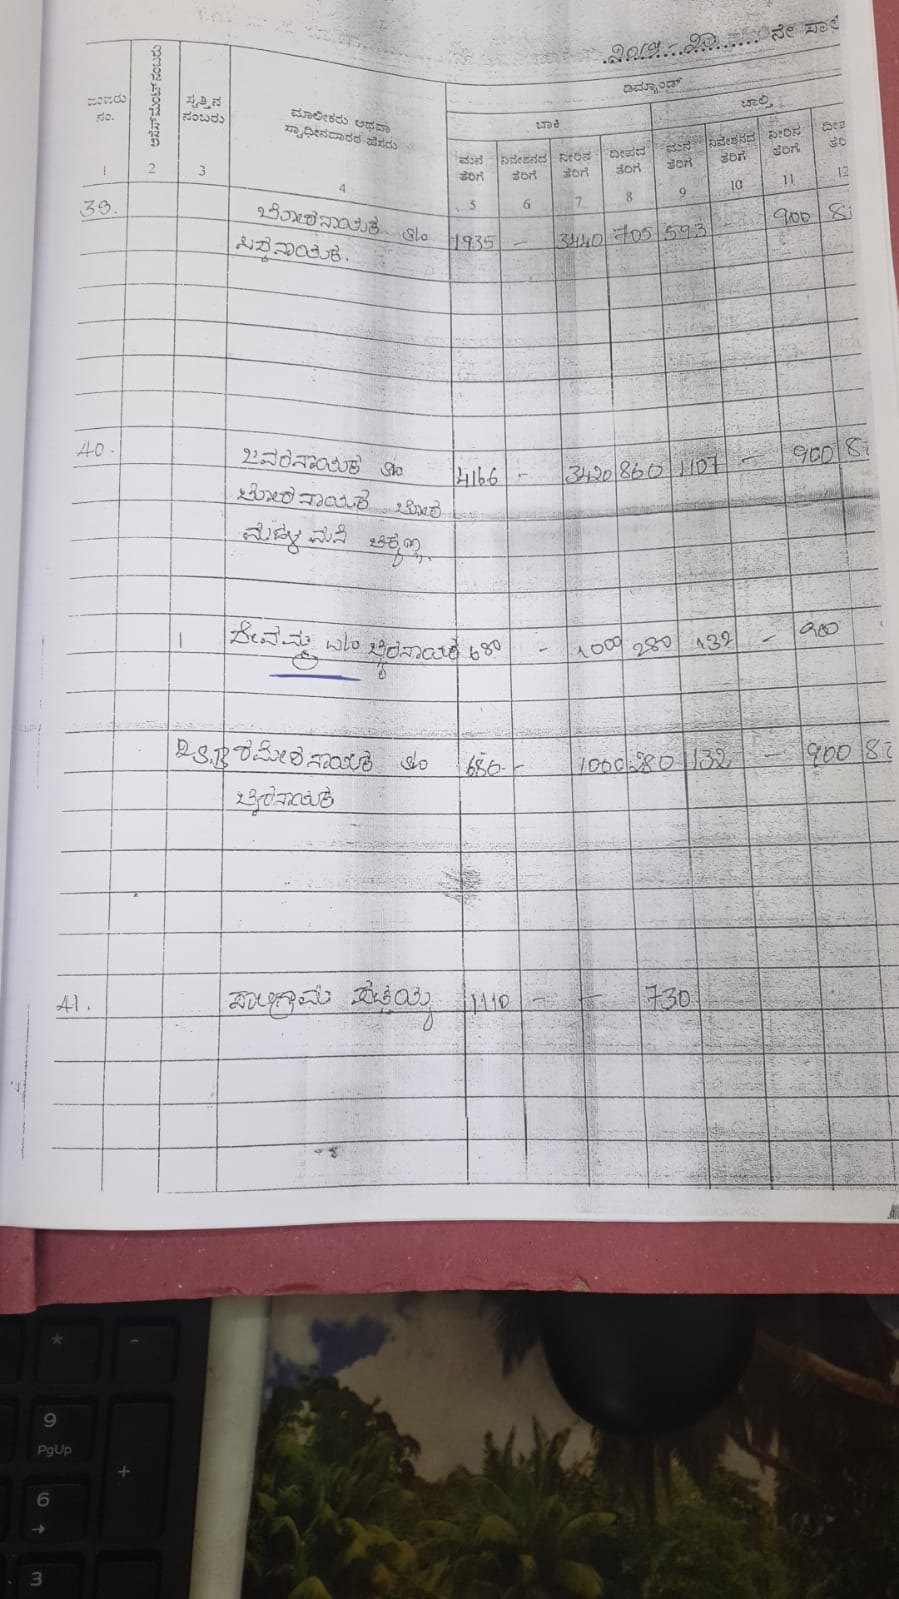 2019-20 ನೇ ಸಾಲಿ
ಡಿಮ್ಯಾಂಡ್
ಬಾಕಿ ಚಾಲ್ತಿ
ನಂಬರು ನಂ. ಅಸೆಸ್‌ಮೆಂಟ್ ನಂಬರು ಸ್ವತ್ತಿನ ನಂಬರು ಮಾಲೀಕರು ಅಥವಾ ಸ್ವಾಧೀನದಾರರ ಹೆಸರು ಮನೆ ತೆರಿಗೆ ನಿವೇಶನದ ತೆರಿಗೆ ನೀರಿನ ತೆರಿಗೆ ದೀಪದ ತೆರಿಗೆ ಮನೆ ತೆರಿಗೆ ನಿವೇಶನದ ತೆರಿಗೆ ನೀರಿನ ತೆರಿಗೆ
1 2 3 4 5 6 7 8 9 10 11 12
39. ಬೋರನಾಯಕ s/o 1935 - 3440 705 593 - 900
ಸಿದ್ದನಾಯಕ.
40. ಜವರನಾಯಕ s/o 4166 - 3420 860 1107 - 900
ಬೋರನಾಯಕ ಬೋರ
ಮನೆ ಚಿಕ್ಕಣ್ಣ
1 ದೇವಮ್ಮ w/o ಬೈರನಾಯಕ 680 - 1000 280 132 - 900
2 S.B ರಮೇಶನಾಯಕ s/o 680 - 1000 280 132 - 900
ಬೈರನಾಯಕ
41. ಸಾಲಿಗ್ರಾಮ 1110 - - 730
* -
9
PgUp
+
6
→
3